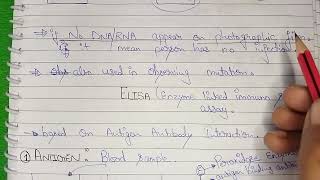 → if No DNA/RNA appear on photographic film.
if it mean person has no infection
→ also used in observing mutation.
ELISA (Enzyme linked immuno
assay.
→ based on Antigen Antibody Interaction.
① ANTIGEN: Blood sample.
Peroxidase Enzyme
antigen